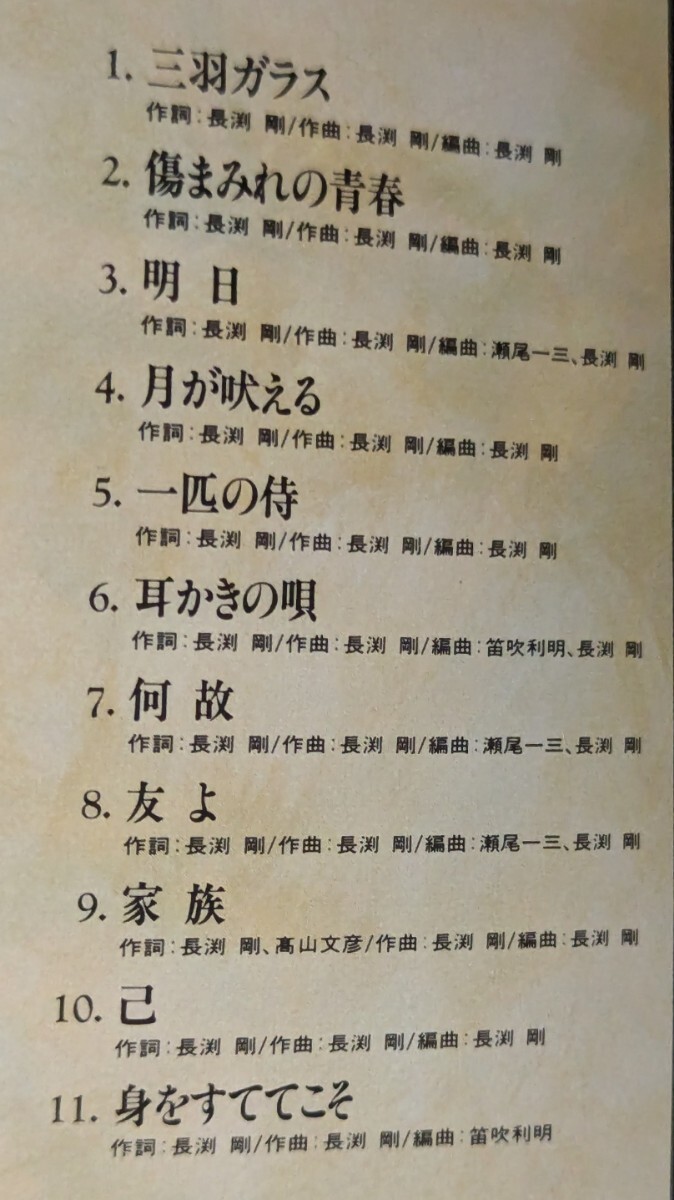 1. 三羽ガラス
作詞:長渕 剛/作曲:長渕 剛/編曲:長渕 剛
2. 傷まみれの青春
作詞:長渕 剛/作曲:長渕 剛/編曲:長渕 剛
3. 明 日
作詞:長渕 剛/作曲:長渕 剛/編曲:瀬尾一三、長渕 剛
4. 月が吠える
作詞:長渕 剛/作曲:長渕 剛/編曲:長渕 剛
5. 一匹の侍
作詞:長渕 剛/作曲:長渕 剛/編曲:長渕 剛
6. 耳かきの唄
作詞:長渕 剛/作曲:長渕 剛/編曲:笛吹利明、長渕 剛
7. 何 故
作詞:長渕 剛/作曲:長渕 剛/編曲:瀬尾一三、長渕 剛
8. 友 よ
作詞:長渕 剛/作曲:長渕 剛/編曲:瀬尾一三、長渕 剛
9. 家 族
作詞:長渕 剛、髙山文彦/作曲:長渕 剛/編曲:長渕 剛
10. 己
作詞:長渕 剛/作曲:長渕 剛/編曲:長渕 剛
11. 身をすててこそ
作詞:長渕 剛/作曲:長渕 剛/編曲:笛吹利明